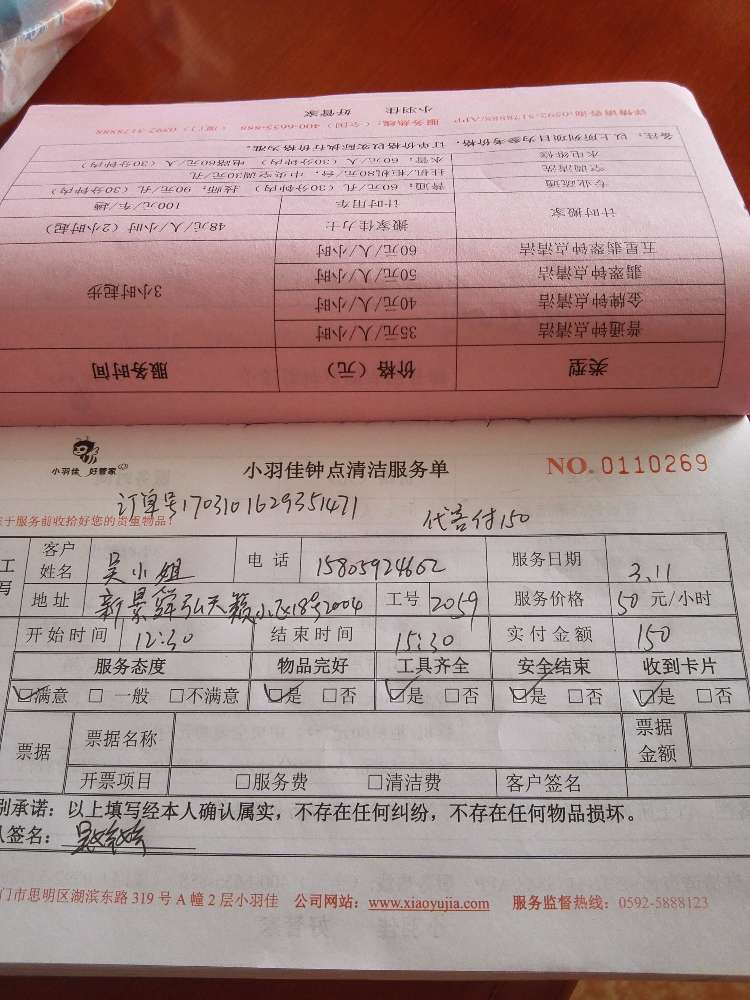 类型 价格（元） 服务时间
普通钟点清洁 35元/人/小时 3小时起步
金牌钟点清洁 40元/人/小时
翡翠钟点清洁 50元/人/小时
五星翡翠钟点清洁 60元/人/小时
计时搬家 搬家佳力士 48元/人/小时（2小时起）
计时用车 100元/车/趟
专业疏通 普通：60元/孔（30分钟内） 技师：90元/孔（30分钟内）
空调清洗 挂机/柜机80元/台，中央空调30元/孔
水电维修 水管：60元/人（30分钟内） 电路60元/人（30分钟内）
备注：以上所列项目为参考价格，订单价格以实际执行价格为准。
服务热线：（全国）400-6655-888 （厦门）0592-5178888
小羽佳 好管家
小羽佳 好管家
小羽佳钟点清洁服务单
NO. 0110269
订单号1703101629351471
于服务前收拾好您的贵重物品！
代售付150
客户姓名 吴小姐 电话 15805924602 服务日期 3.11
地址 新景舜弘天籁小区18号2004 工号 2059 服务价格 50 元/小时
开始时间 12:30 结束时间 15:30 实付金额 150
服务态度 物品完好 工具齐全 安全结束 收到卡片
☑满意 □一般 □不满意 ☑是 □否 ☑是 □否 ☑是 □否 ☑是 □否
票据 票据名称 票据金额
开票项目 □服务费 □清洁费 客户签名
别承诺：以上填写经本人确认属实，不存在任何纠纷，不存在任何物品损坏。
签名：
门市思明区湖滨东路 319 号 A 幢 2 层小羽佳 公司网站：www.xiaoyujia.com 服务监督热线：0592-5888123